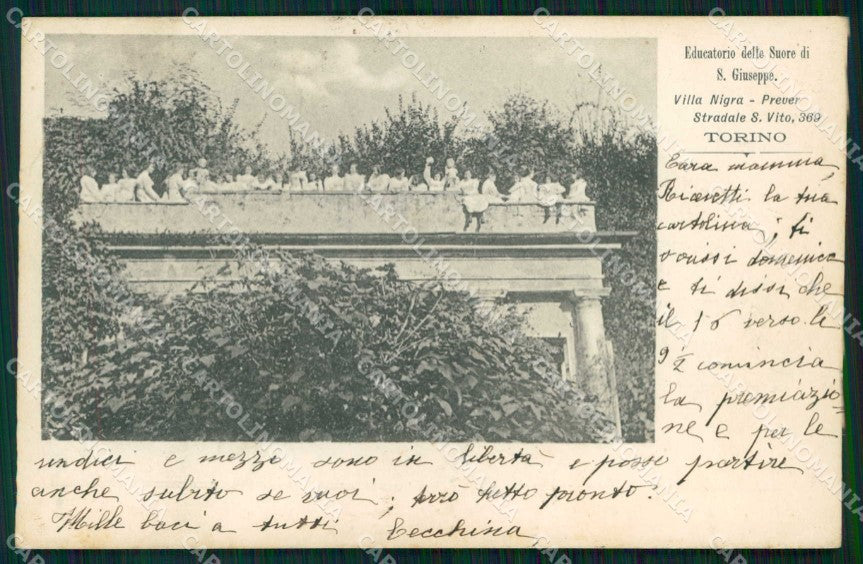 Educatorio delle Suore di
S. Giuseppe.
Villa Nigra - Prever
Stradale S. Vito, 369
TORINO
Cara mamma,
Ricevetti la tua
cartolina; ti
scrissi domenica
e ti dissi che
il 16 verso le
9 ½ comincia
la premiazio-
ne e per le
undici e mezzi sono in libertà e posso partire
anche subito se vuoi; avrò tutto pronto.
Mille baci a tutti Cecchina
CARTOLINOMANIA.COM